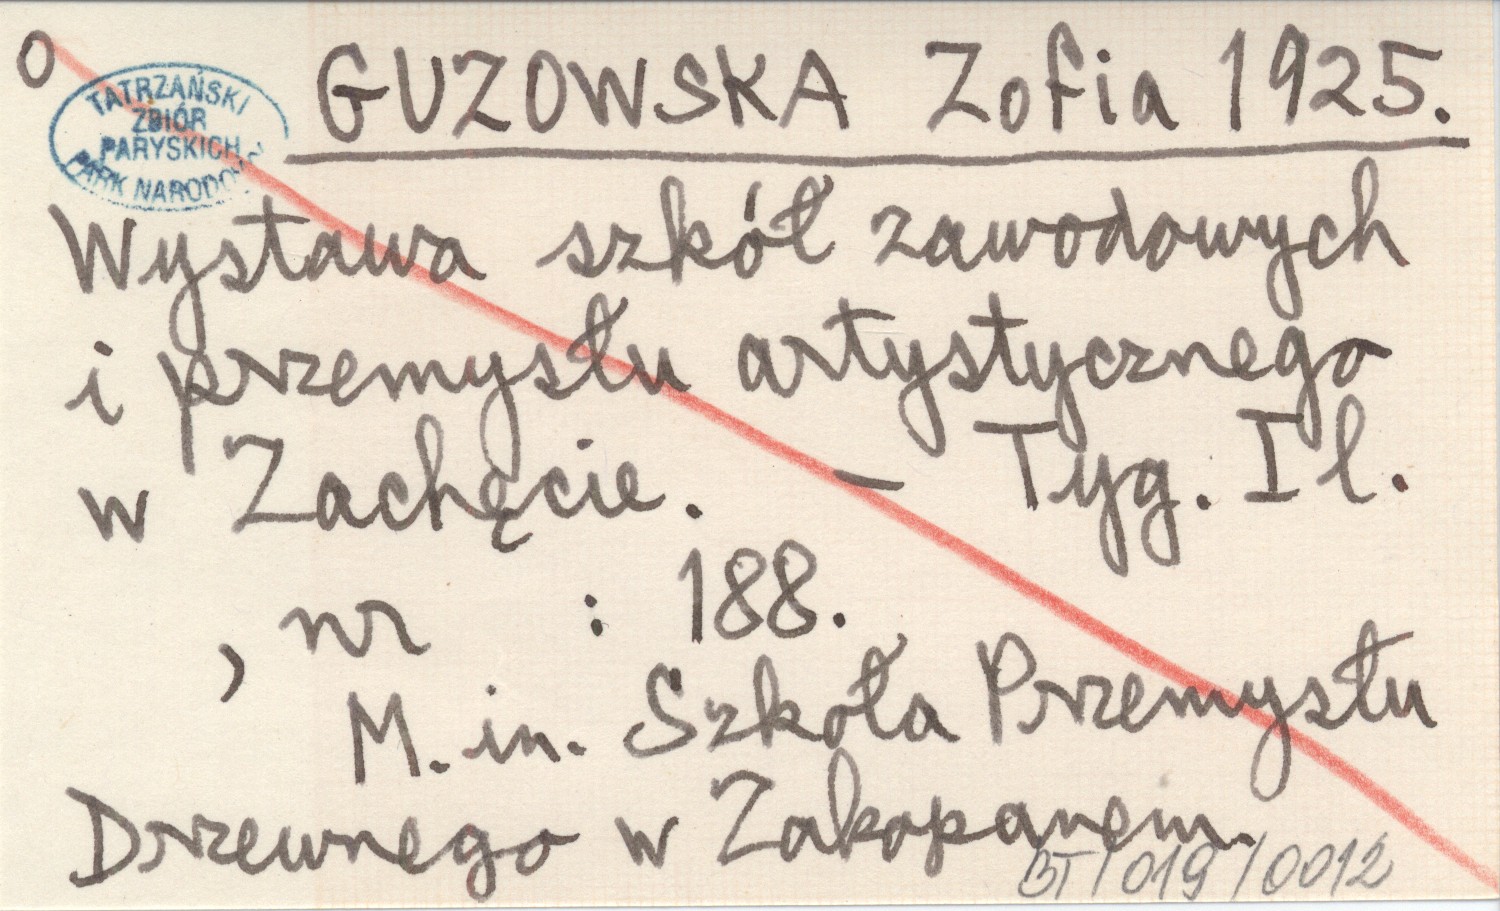 o
TATRZAŃSKI
ZBIÓR
PARYSKICH
PARK NARODOWY
GUZOWSKA Zofia 1925.
Wystawa szkół zawodowych
i przemysłu artystycznego
w Zachęcie. – Tyg. Il.
, nr : 188.
M. in. Szkoła Przemysłu
Drzewnego w Zakopanem.
BT/019/0012